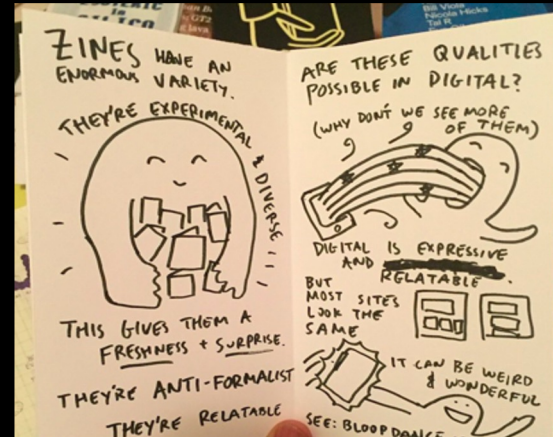 Bill Viola
Nicola Hicks
Tal R
ZINES HAVE AN
ENORMOUS VARIETY.
THEY'RE EXPERIMENTAL & DIVERSE
THIS GIVES THEM A
FRESHNESS + SURPRISE.
THEY'RE ANTI-FORMALIST
THEY'RE RELATABLE
ARE THESE QUALITIES
POSSIBLE IN DIGITAL?
(WHY DON'T WE SEE MORE
OF THEM)
DIGITAL IS EXPRESSIVE
AND RELATABLE.
BUT
MOST SITES
LOOK THE
SAME
IT CAN BE WEIRD
& WONDERFUL
SEE: BLOOP DANCE